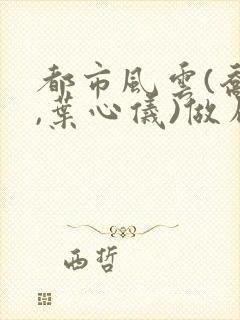 都市風雲(喬
,葉心儀)做
西哲